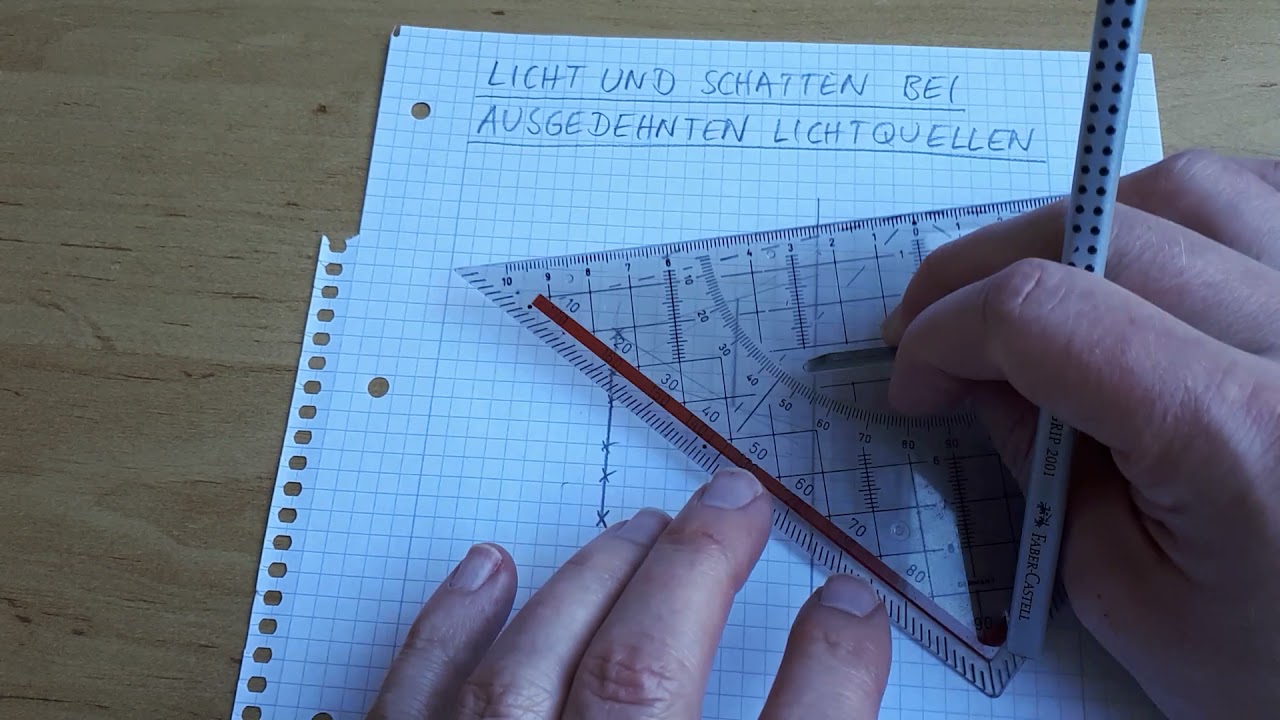 LICHT UND SCHATTEN BEI
AUSGEDEHNTEN LICHTQUELLEN
10 9 8 7 6 4 3 2 1 0 1
10 20 30 40 50 60 70 80 90
20 30 40 50 60 70 80 90
GRIP 2001 FABER-CASTELL